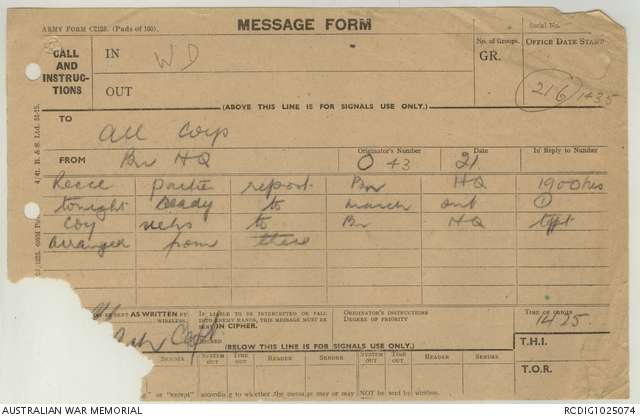 ARMY FORM C2128. (Pads of 100).
MESSAGE FORM
Serial No.
CALL AND INSTRUCTIONS
IN
WD
OUT
No. of Groups.
GR.
OFFICE DATE STAMP
216 1435
(ABOVE THIS LINE IS FOR SIGNALS USE ONLY.)
TO
All Coys
FROM
Bn HQ
Originator's Number
O 43
Date
21
In Reply to Number
Recce parties report Bn HQ 1900 hrs
tonight Ready to march out ①
Coy to Bn HQ tpt
arranged from there
AS WRITTEN BY WIRELESS.
IF LIABLE TO BE INTERCEPTED OR FALL INTO ENEMY HANDS, THIS MESSAGE MUST BE SENT IN CIPHER.
ORIGINATOR'S INSTRUCTIONS
DEGREE OF PRIORITY
TIME OF ORIGIN
1425
Capt
(BELOW THIS LINE IS FOR SIGNALS USE ONLY.)
T.H.I.
SENDER SYSTEM OUT TIME OUT READER SENDER SYSTEM OUT TIME OUT READER SENDER
T.O.R.
or "except" according to whether the message may or may NOT be sent by wireless.
AUSTRALIAN WAR MEMORIAL
RCDIG1025074